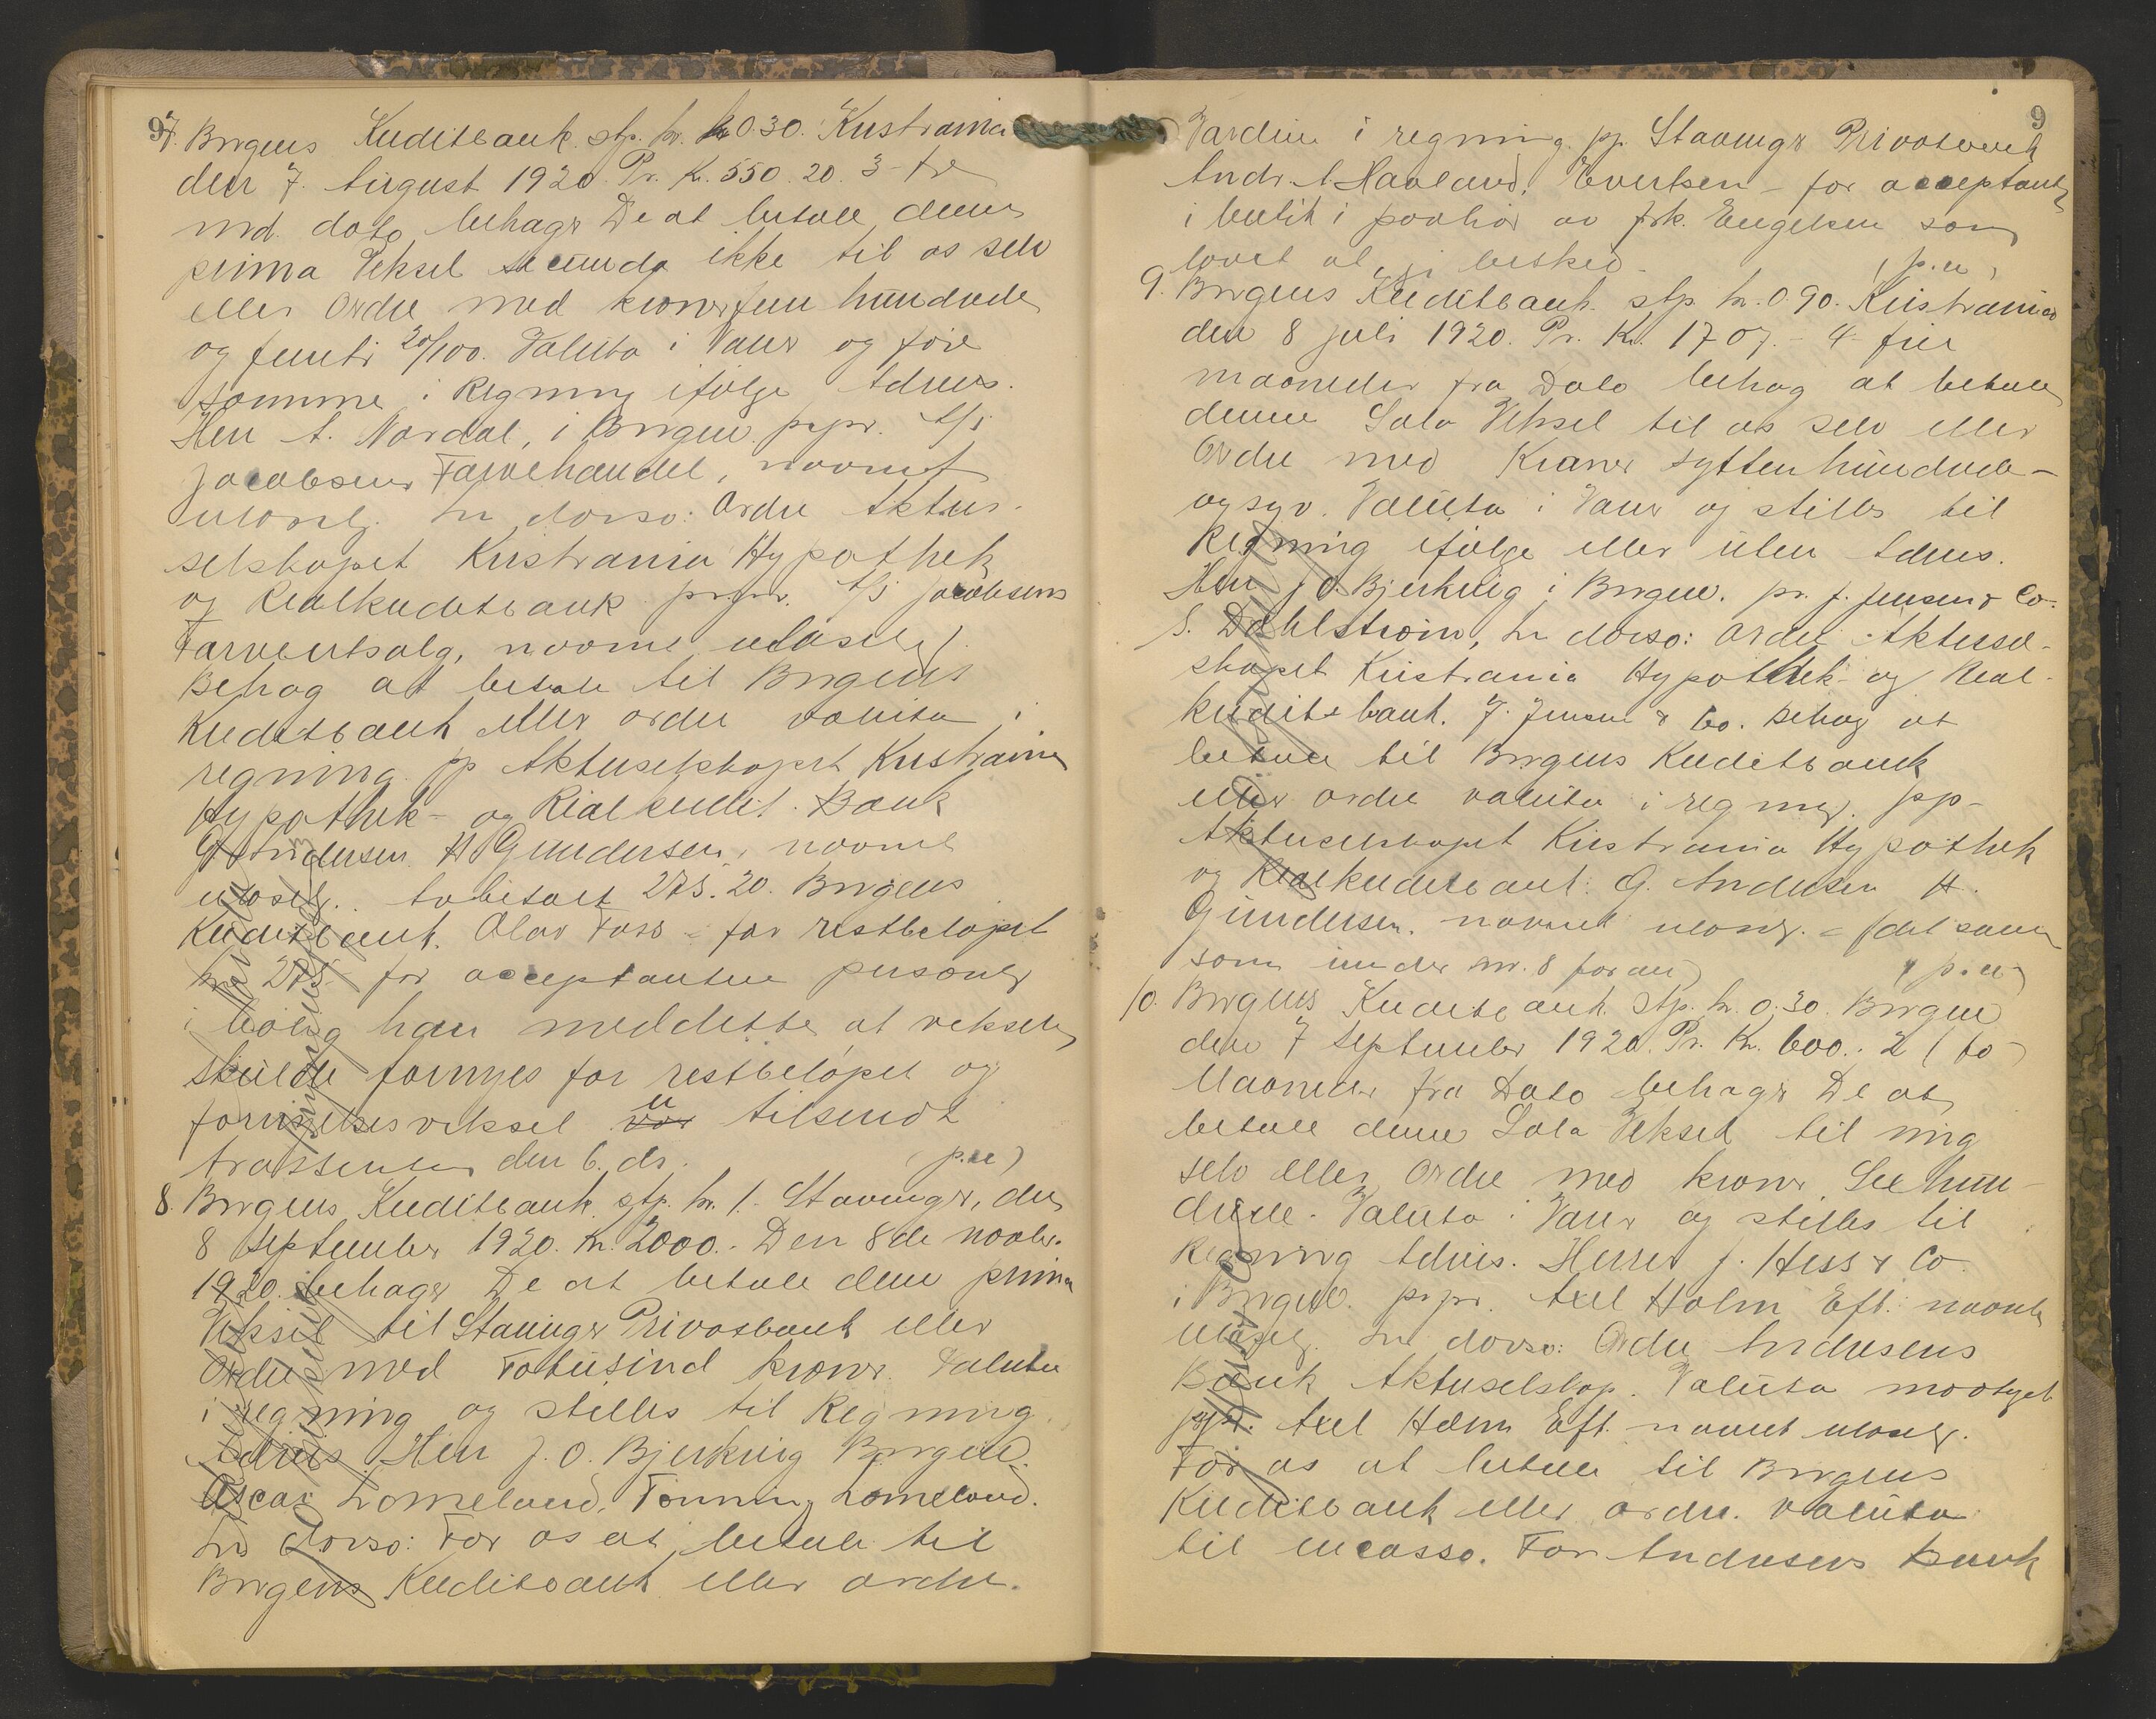 7. Brgens Kreditbank. stp. kr. 0.30. Kristiania
den 7. August 1920. Pr. Kr. 550.20. 3 - tre
md. dato behagr De at betale denne
prima Veksel secunda ikke til os selv
eller Ordre med kroner fem hundrede
og femti 20/100. Valuta i Varer og före
somme i Regning ifölge Advis.
Herr A. Nordal, i Brgen. prpr. A/S
Jacobsens Farvehandel, navnet
ulæselg. In dorso: Ordre Aktie-
selskapet Kristiania Hypothek
og Realkreditbank prpr. A/S Jacobsens
Farveutsalg, navnet ulæselg.
Behag at betale til Brgens
Kreditbank eller ordre valuta i
regning pp Aktieselskapet Kristiania
Hypothek- og Realkredit. Bank
G. Andersen H Gundersen, navnet
ulæselg. Avbetalt 275.20. Brgens
Kreditbank. Olav Foss - for restbelöpet
kr 275 - for acceptanten personlg
i bolig han meddelte at vekselen
skulde fornyes for restbelöpet og
fornyelsesveksel tilsendt
trassenten den 6. ds. (p.u)
8. Brgens Kreditbank. stp. kr. 1. Stavanger, den
8 September 1920. Kr. 2000.- Den 8de novbr.
1920. behager De at betale denne prima
Veksel til Stavanger Privatbank eller
Ordre med Totusind kroner. Valuta
i regning og stilles til Regning
Advis Herr J. O. Bjerkvig Brgen.
Oscar Lomeland, Tönning Lomeland.
In dorso: For os at betale til
Brgens Kreditbank eller ordre.
9
Værdien i regning. pp. Stavanger Privatbank
Andr. A Haaland, Evertsen - for acceptanten
i butik i paahör av frk. Engelsen som
lovet at gi besked. (p.u)
9. Brgens Kreditbank. stp. kr. 0.90. Kristiania
den 8 juli 1920. Pr. Kr. 1707.- 4 - fire
maaneder fra Dato behag at betale
denne Sola Veksel til os selv eller
Ordre med Kroner syttenhundrede-
ogsyv. Valuta i Varer og stilles til
Regning ifölge eller uten Advis.
Herr J. O. Bjerkvig i Brgen. pr. J. Jensen & Co.
S. Dahlström, In dorso: Ordre Aktiesel-
skapet Kristiania Hypothek- og Real-
kreditbank. J. Jensen & Co. Behag at
betale til Brgens Kreditbank
eller ordre valuta i regning. pp-
Aktieselskapet Kristiania Hypothek
og Realkreditbank: G. Andersen H.
Gundersen. navnet ulæselg. - (det samme
som under nr. 8 foran) (p.u)
10. Brgens Kreditbank. Stp. kr. 0.30. Brgen
den 7 September 1920. Pr. Kr. 600.- 2 (to)
Maaneder fra Dato behagr De at
betale denne Sola Veksel til mig
selv eller Ordre med kroner Sexhun-
drede. Valuta i Varer og stilles til
Regning Advis. Herrer J. Hess & Co.
i Brgen. prpr. Axel Holm Eft. navnet
ulæselg. In dorso: Ordre Andresens
Bank Aktieselskap. Valuta modtaget
prpr. Axel Holm Eft. navnet ulæselg.
For os at betale til Brgens
Kreditbank eller ordre. valuta
til incasso. For Andresens Bank